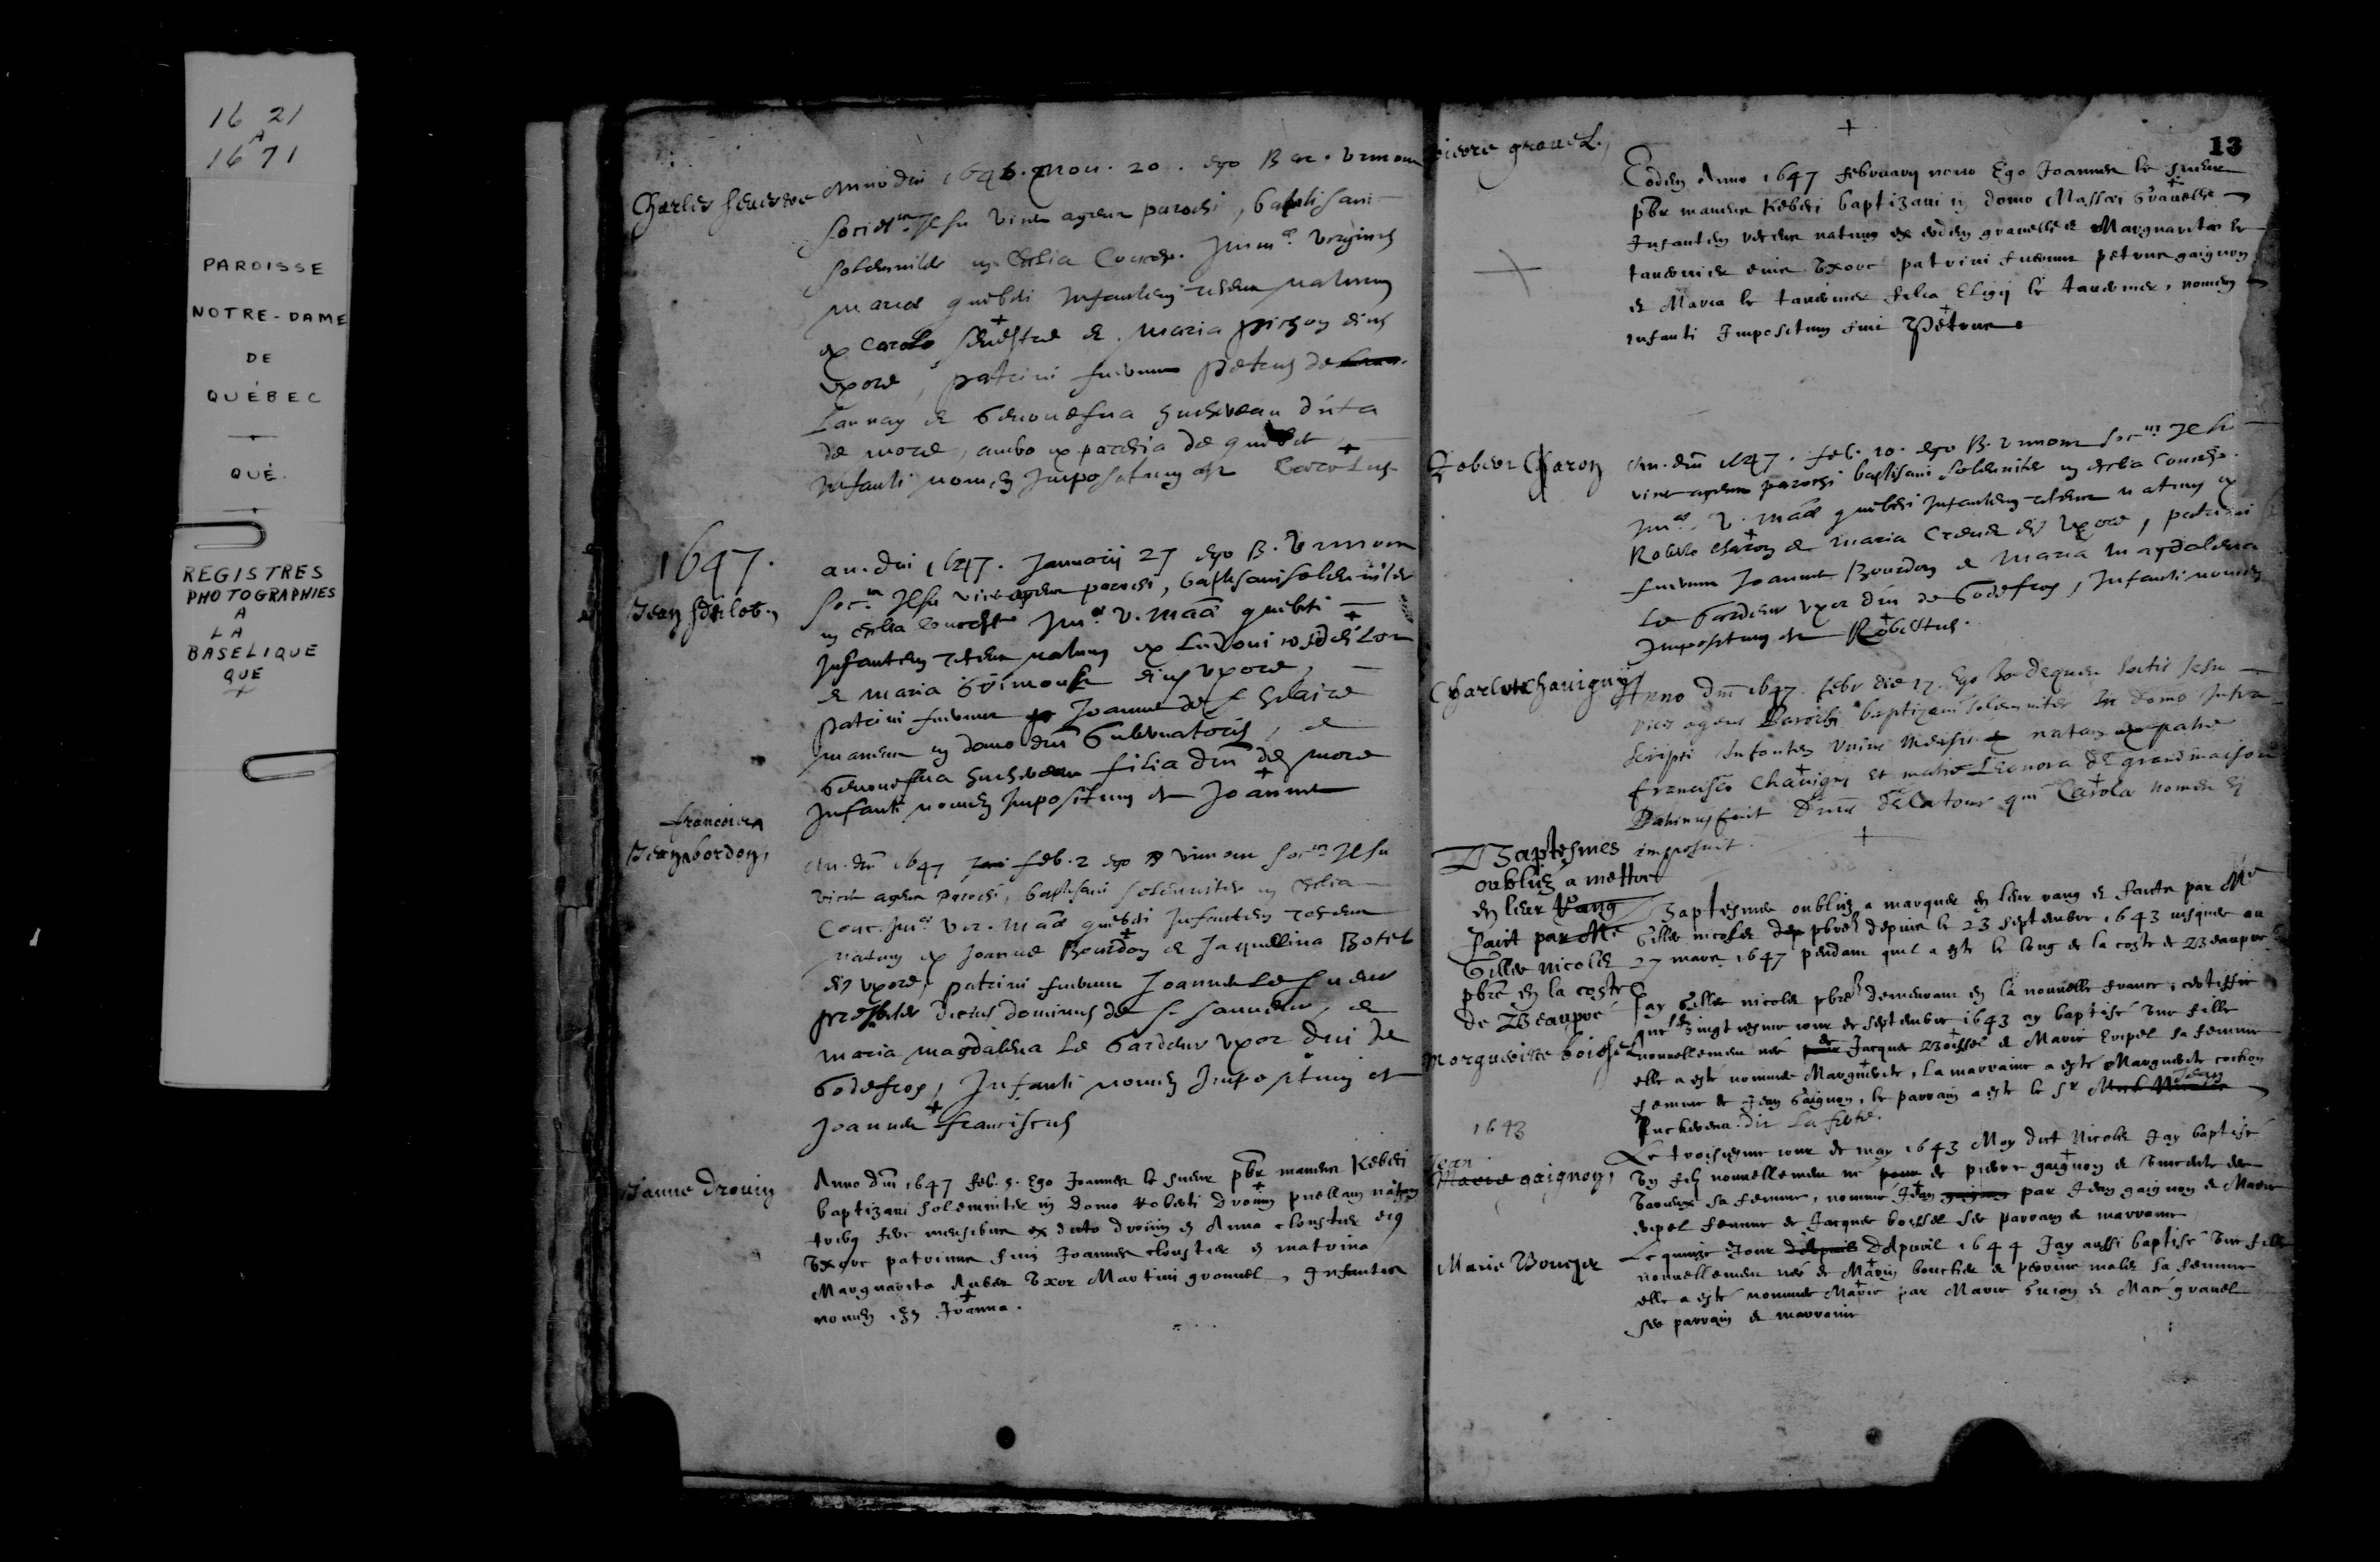 16 21
A
16 71
PAROISSE
NOTRE-DAME
DE
QUÉBEC
QUÉ.
REGISTRES
PHOTOGRAPHIES
A
LA
BASELIQUE
QUE
Anno dni 1646. Nou. 20. ego Bar. Vimont
Societ. Jesu vices agens parochi, baptisaui
solemniter in Ecclia Concep. Imm. Virginis
mariae quebeci Infantem recens natum
ex Carolo seuestre et maria pichon eius
vxore, patrini fuerunt petrus de
Launay et Genouefua Juchereau dicta
de more, ambo ex parochia de quebec
Infanti nomen Impositum est Carolus
1647.
an. dni 1647. Januarij 27 ego B. Vimont
Soc. Jesu vices agens parochi, baptisaui solemniter
in Ecclia Concept. Im. V. Mariae quebeci
Infantem recens natum ex Ludouico
et maria Grimoult eius vxore,
patrini fuerunt Joannes de S. hilaire
manens in domo dni Gubernatoris, et
Genouefua Jucherau filia dni de more
Infanti nomen Impositum est Joannes
francois
Jean bordon,
An. dni 1647 feb. 2 ego B vimont Soc. Jesu
vices agens parochi, baptisaui solemniter in Ecclia
Conc. Im. Vir. Mariae quebeci Infantem recens
natum ex Joanne Bourdon et Jaquelina Potel
eius vxore, patrini fuerunt Joannes Le Sueur
presbiter dictus dominus de S. Sauueur, et
maria magdalena Le Gardeur vxor dni de
Godefroy, Infanti nomen Impositum est
Joannes franciscus
Janne Drouin
Anno dni 1647 feb. 5. Ego Joannes le sueur pbr manens Kebeci
baptizaui solemniter in domo Roberti Drouin puellam natam
ex dicto drouin et Anna cloustier eius
vxore patrinus fuit Joannes cloustier et matrina
Marguarita Auber vxor Martini grouuel, Infantis
nomen est Joanna.
pierre grauel,
13
Eodem Anno 1647 februarij nono Ego Joannes le sueur
pbr manens Kebeci baptizaui in domo Massei Grauelle
Infantem recens natum ex eodem grauelle et Marguarita le
tauernier eius vxore patrini fuerunt petrus gaignon
et Maria le tauernier filia Eligij le tauernier, nomen
infanti Impositum fuit Petrus
Robert Charon
An. dni 1647. feb. 10. ego B. vimont Soc. Jesu
vices agens parochi baptisaui solemniter in Ecclia Concep.
Im. V. Mariae quebeci Infantem recens natum ex
Roberto charon et maria Creuet eius vxore, patrini
fuerunt Joannes Bourdon et Maria Magdalena
Le Gardeur vxor dni de Godefroy, Infanti nomen
Impositum est Robertus.
Charlote Chauigny
Anno dni 1647. febr die 17. Ego Jo dequen Soctis Jesu
vices agens Parochi baptizaui solemniter In domo Infra
scripti Infantem vnius mensis natam ex patre
francisco Chauigny et matre Leonora de grandmaison
Patrinus fuit Dnus de Latour qui Carola nomen ei
imposuit.
Baptesmes
oubliez a mettre
en leur Rang
fait par Mr
Gilles Nicolet
pbre en la coste
de Beaupré
Baptesmes oubliez a marquer en leur rang et faicts par Mr
Gilles nicolet pbre depuis le 23 septembre 1643 iusques au
27 mars 1647 pendant quil a este le long de la coste de Beaupre
Jay Gilles nicolet pbre demeurant en la nouuelle france, certiffie
que le vingt iour de septembre 1643 ay baptisé vne fille
Marguerite boissel
nouuellement née de Jacques Boissel et Marie Eripel sa femme
elle a esté nommée Marguerite, la marraine a esté Marguerite cochon
femme de Jean Gaignon, le parrain a esté le sr Jean
dit La ferté.
1643
Le troisiesme iour de may 1643 Moy dict Nicolet Jay baptisé
Jean
Marie gaignon,
vn filz nouuellement né de pierre gaignon et vincente des
varieux sa femme, nommé Jean par Jean gaignon et Marie
eripel femme de Jacques boissel ses parrain et marraine
Marie Boucher
Le quinze Jour d'Apuril 1644 Jay aussi baptisé vne fille
nouuellement née de Marin boucher et perrine malet sa femme
elle a esté nommée Marie par Marie Guion et Macé grauel
ses parrain et marraine